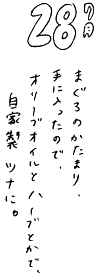 7月
28
まぐろのかたまり、
手に入ったので、
オリーブオイルとハーブとかで、
自家製 ツナに。